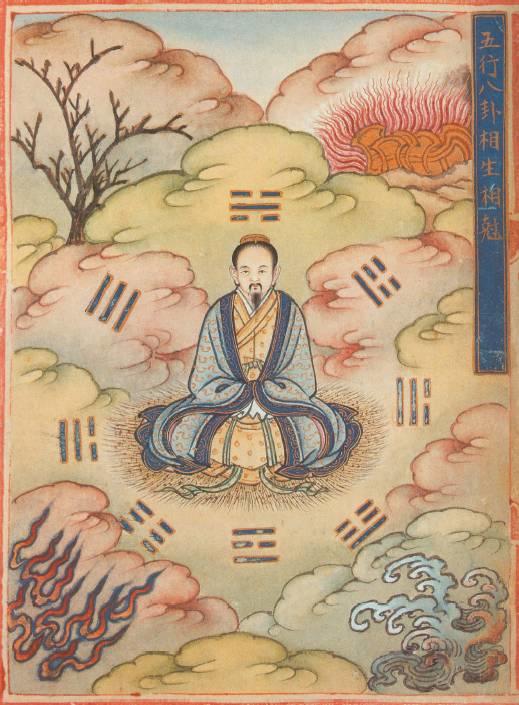 五行八卦相生相尅